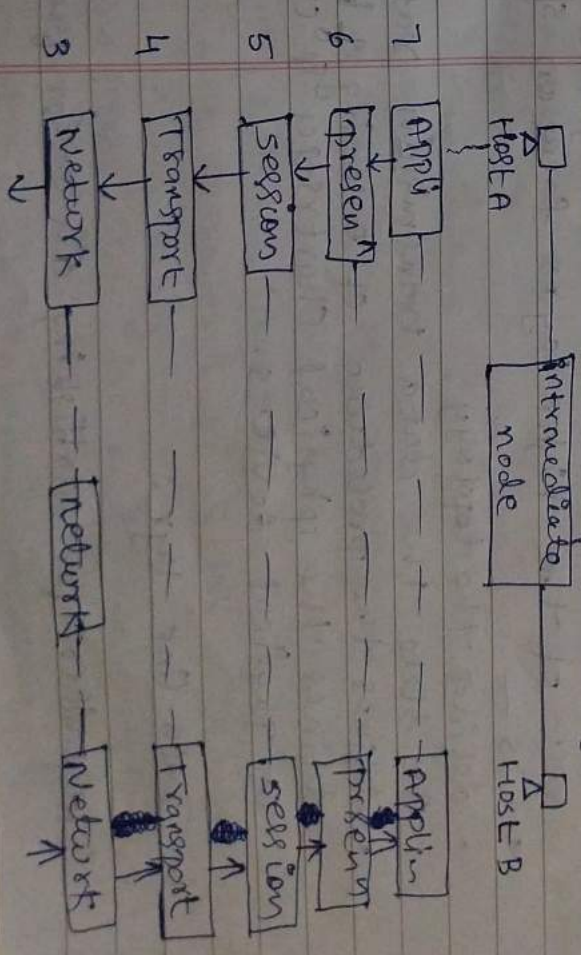 intromediate
node
Host A
Host B
7 Appli Applin
6 presen^n presein
5 Session session
4 Transport Transport
3 Network network Network